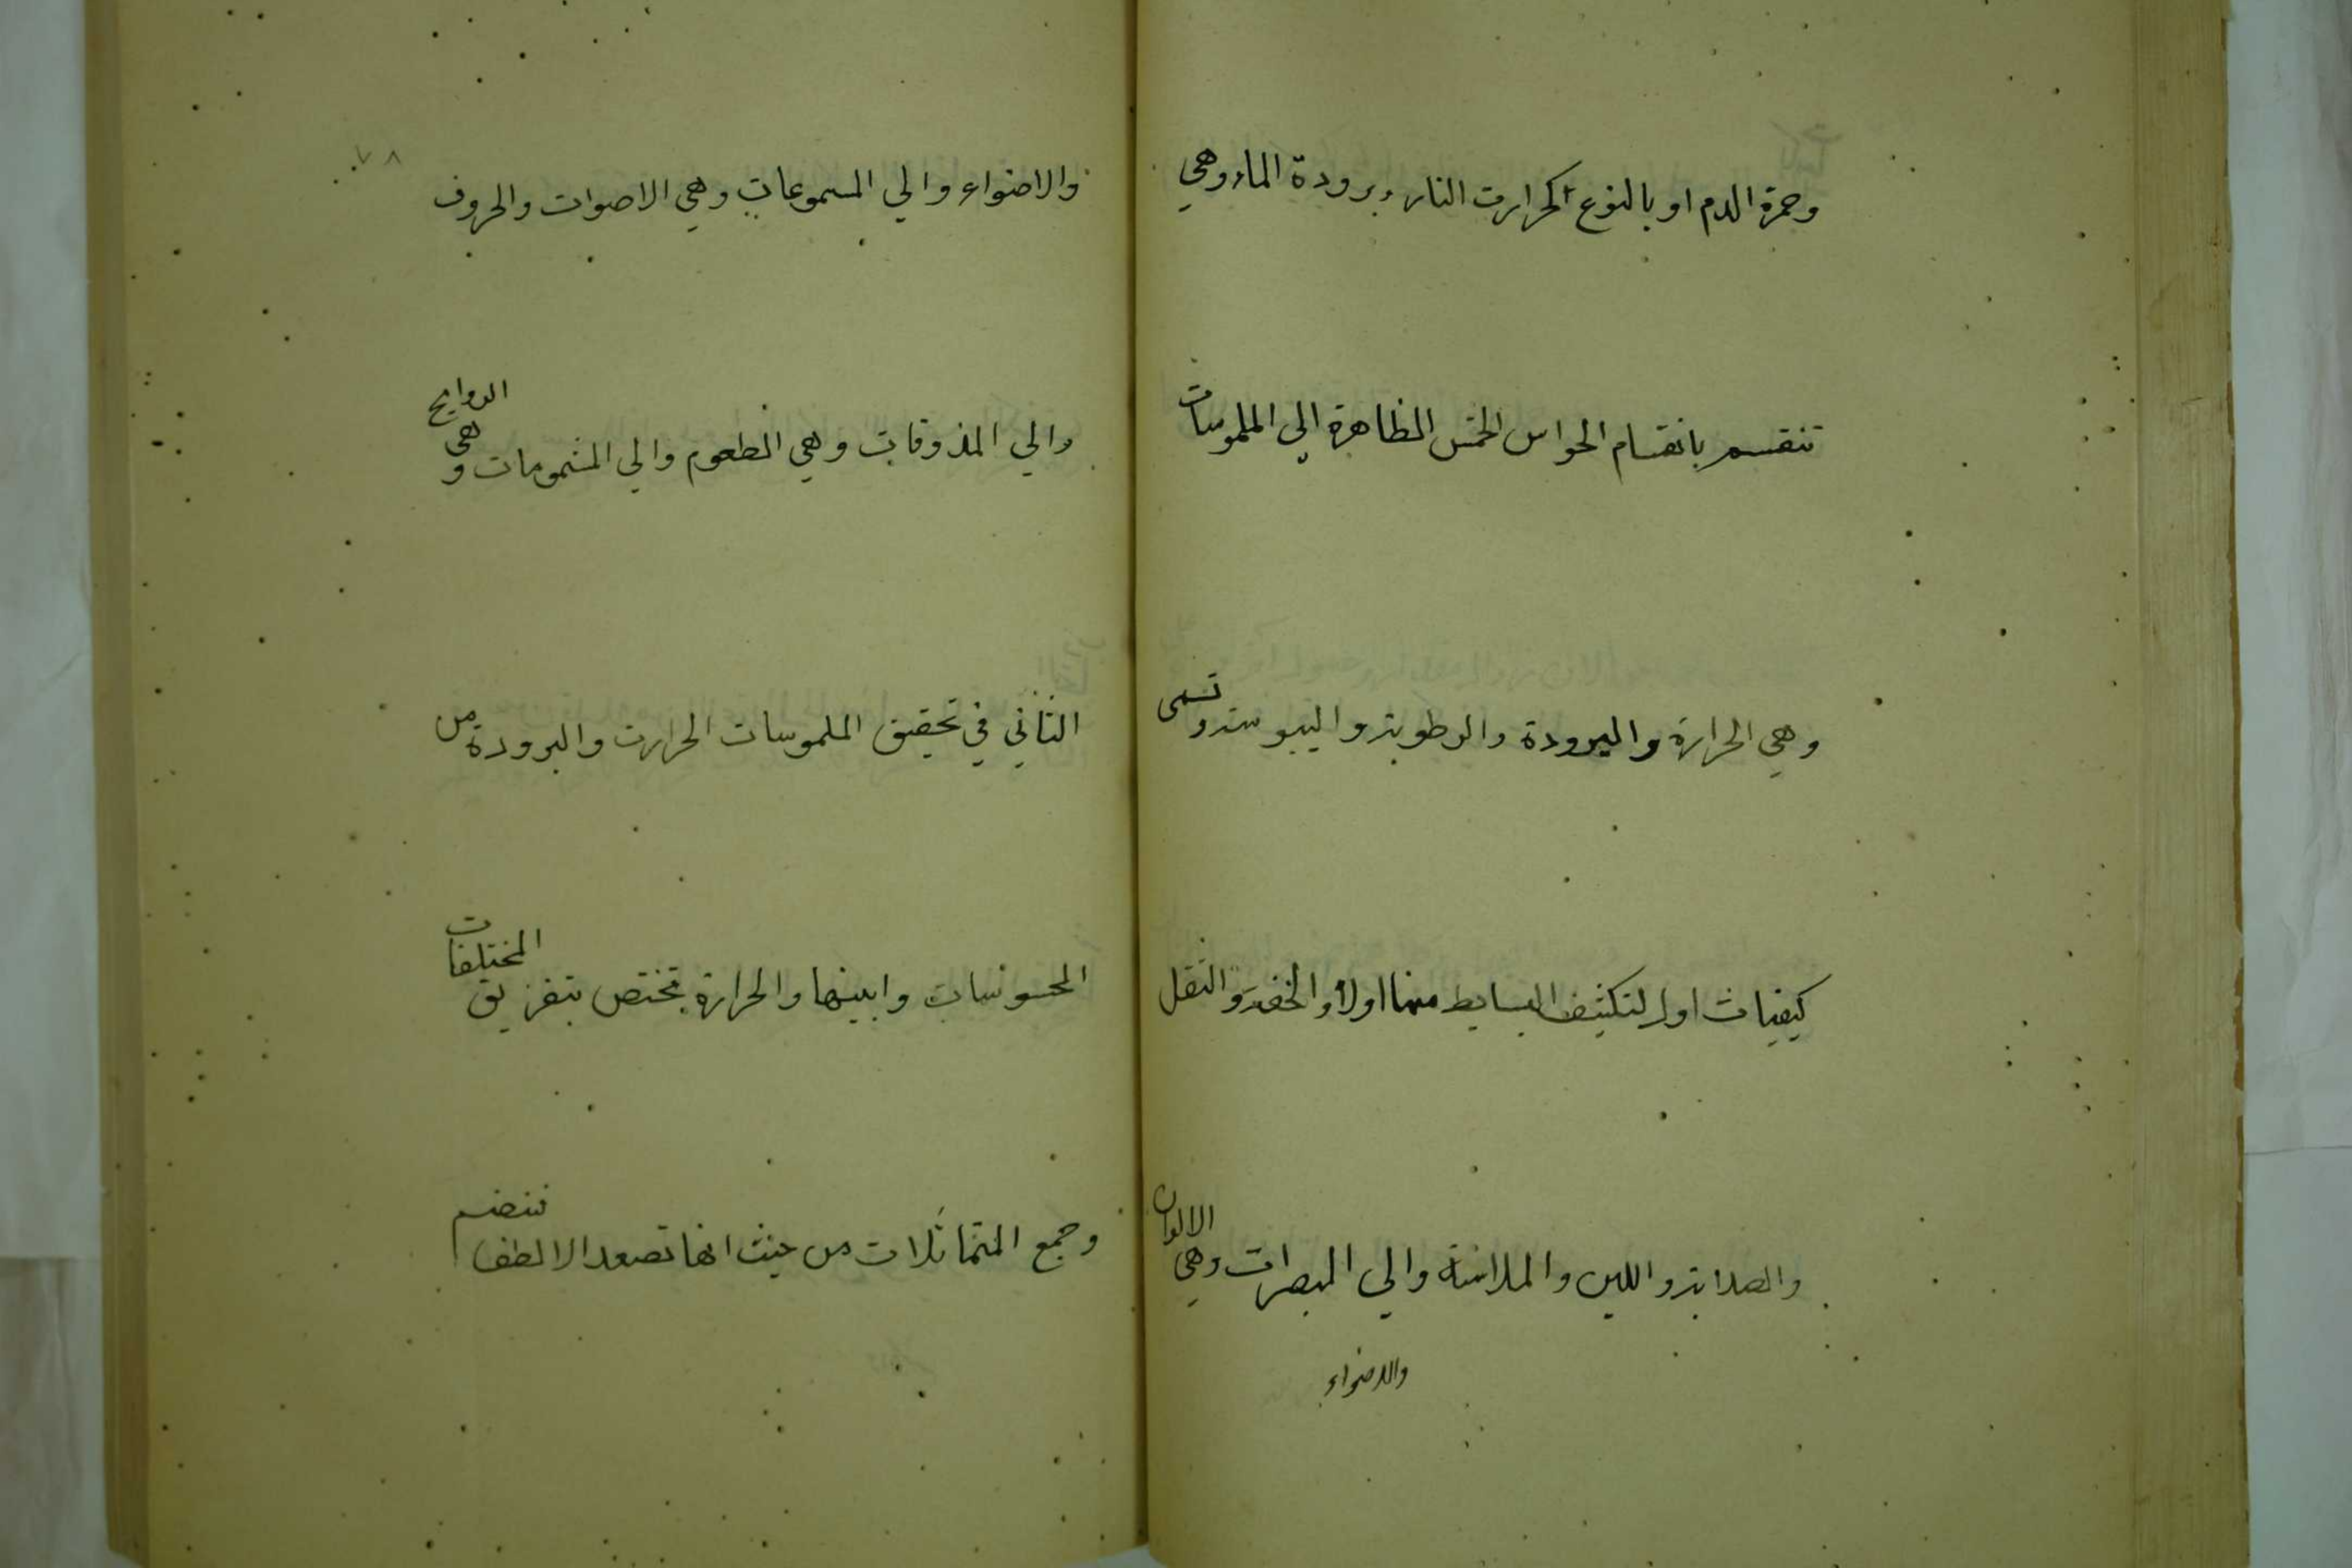 وحمرة الدم او بالنوع كحرارت النار وبرودة الماء وهي
تنقسم بانقسام الحواس الخمس الظاهرة الي الملموسات
وهي الحرارة والبرودة والرطوبة واليبوسة وتسمى
كيفيات اول لتكيف البسايط منها اولا والخفة والثقل
والصلابة واللين والملاسة والي المبصرات وهي الالوان
والاضواء
٧٨
والاضواء والي المسموعات وهي الاصوات والحروف
والي المذوقات وهي الطعوم والي المشمومات وهي الروايح
الثاني في تحقيق الملموسات الحرارت والبرودة من
المحسوسات وابينها والحرارة تختص بتفريق المختلفات
وجمع المتماثلات من حيث انها تصعد الالطف فينضم